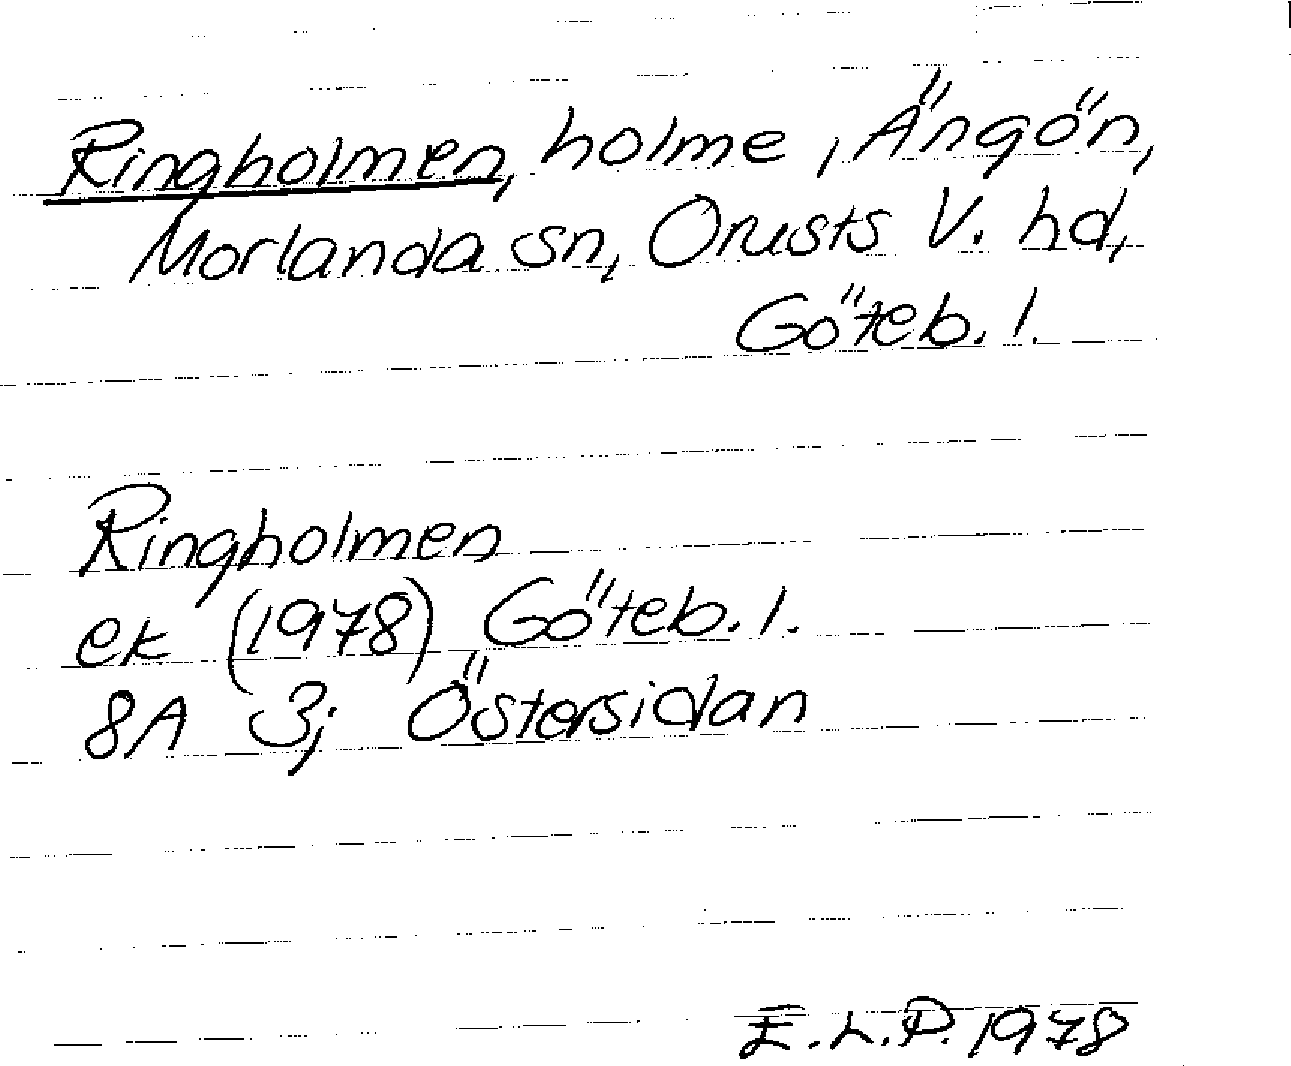 Ringholmen, holme, Ängön,
Morlanda sn, Orusts V. hd,
Göteb. l.
Ringholmen
ek (1978) Göteb. l.
8A 3; Östersidan
E.L.P. 1978